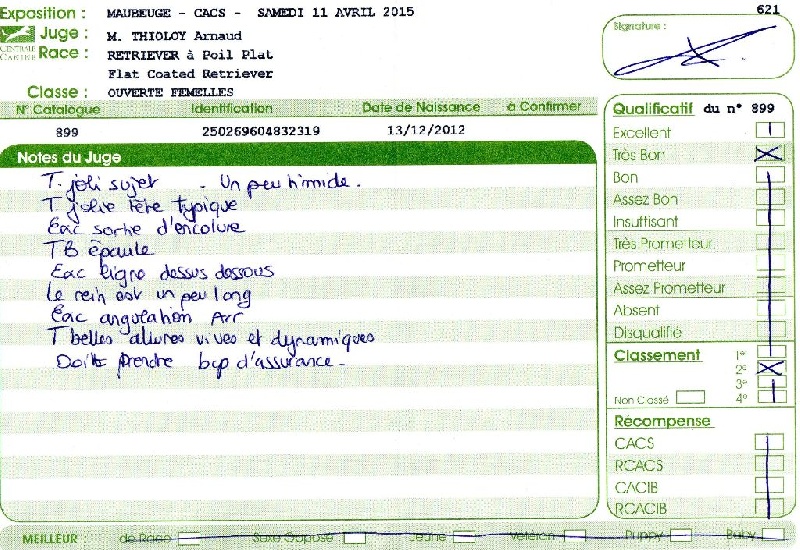 Exposition : MAUBEUGE - CACS - SAMEDI 11 AVRIL 2015
621
Juge : M. THIOLOY Arnaud
CENTRALE CANINE
Race : RETRIEVER à Poil Plat
Flat Coated Retriever
Classe : OUVERTE FEMELLES
Signature :
N° Catalogue Identification Date de Naissance à Confirmer
899 250269604832319 13/12/2012
Notes du Juge
T. joli sujet - Un peu timide.
T jolie tête typique
Exc sortie d'encolure
TB épaule
Exc ligne dessus dessous
Le rein est un peu long
Exc angulation Arr
T belles allures vives et dynamiques
Doit prendre bcp d'assurance -
Qualificatif du n° 899
Excellent
Très Bon
Bon
Assez Bon
Insuffisant
Très Prometteur
Prometteur
Assez Prometteur
Absent
Disqualifié
Classement 1°
2°
3°
Non Classé 4°
Récompense
CACS
RCACS
CACIB
RCACIB
MEILLEUR : de Race Sexe Opposé Jeune Vétéran Puppy Baby